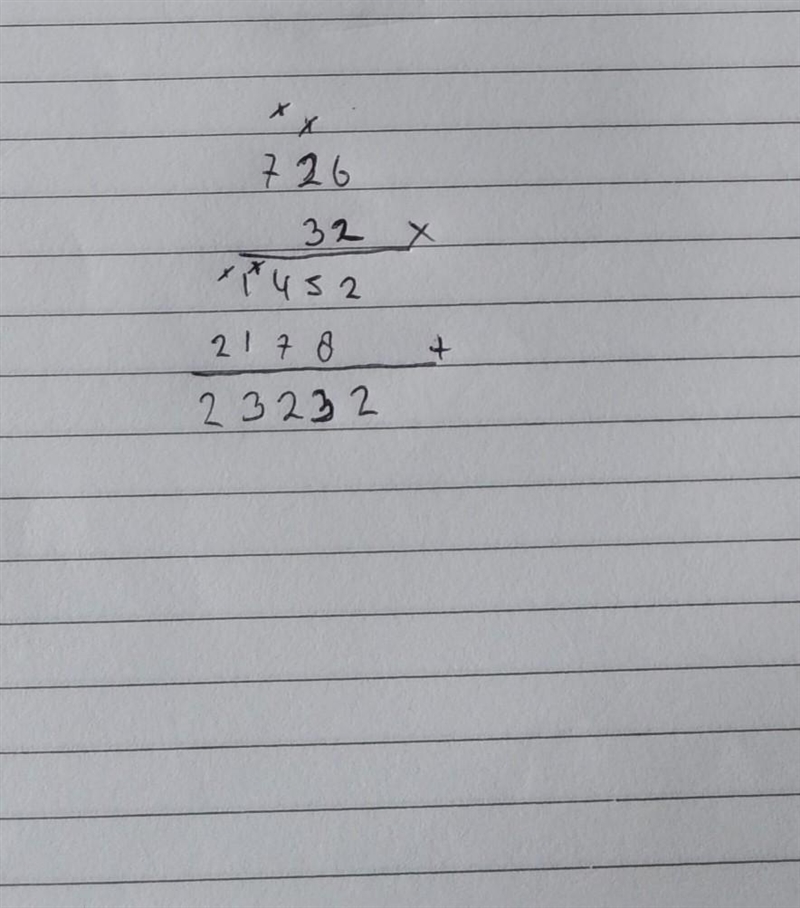 x
x
726
32 x
x 1 x 452
2178 +
23232